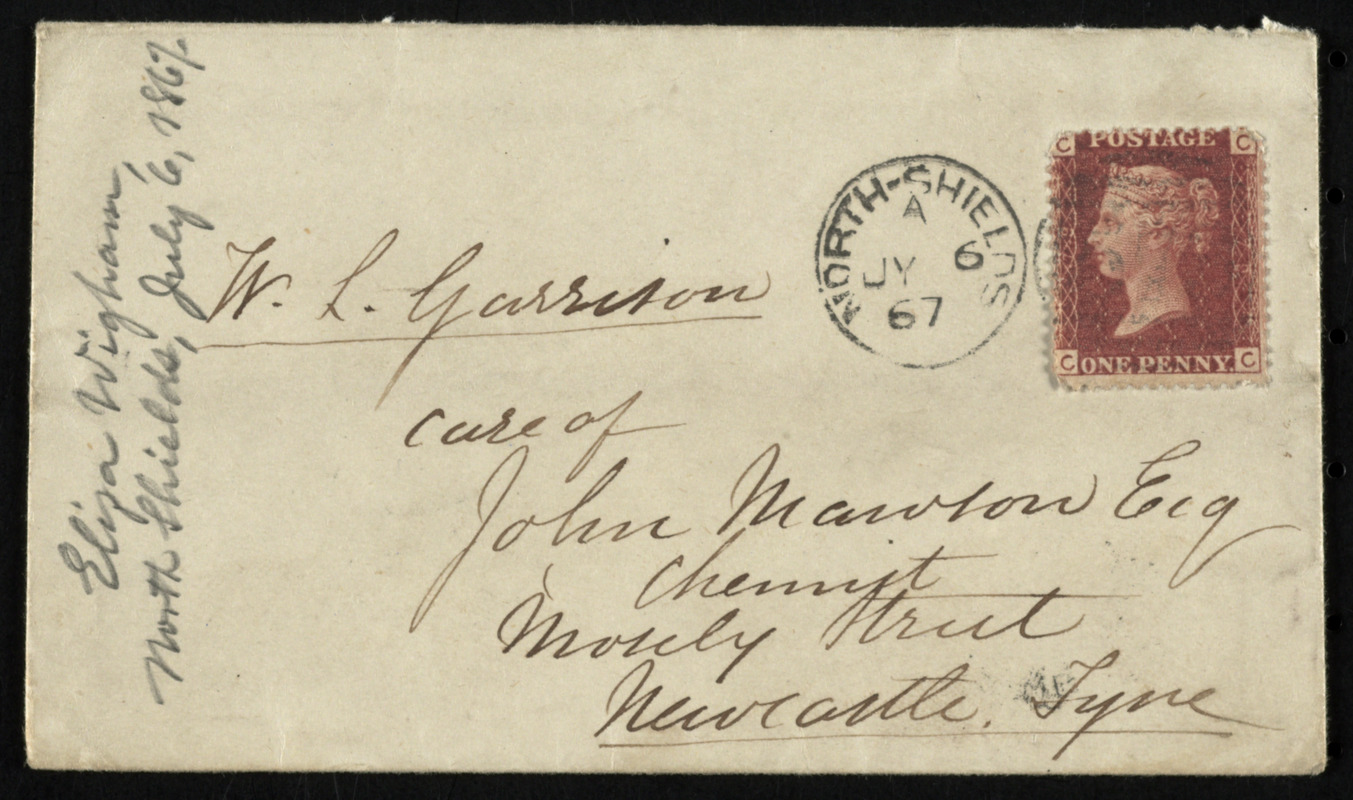 Eliza Wigham,
North Shields, July 6, 1867.
W. L. Garrison
care of
John Mawson Esq
Chemist
Mosely Street
Newcastle. Tyne
NORTH-SHIELDS
A
JY 6
67
C POSTAGE C
C ONE PENNY. C